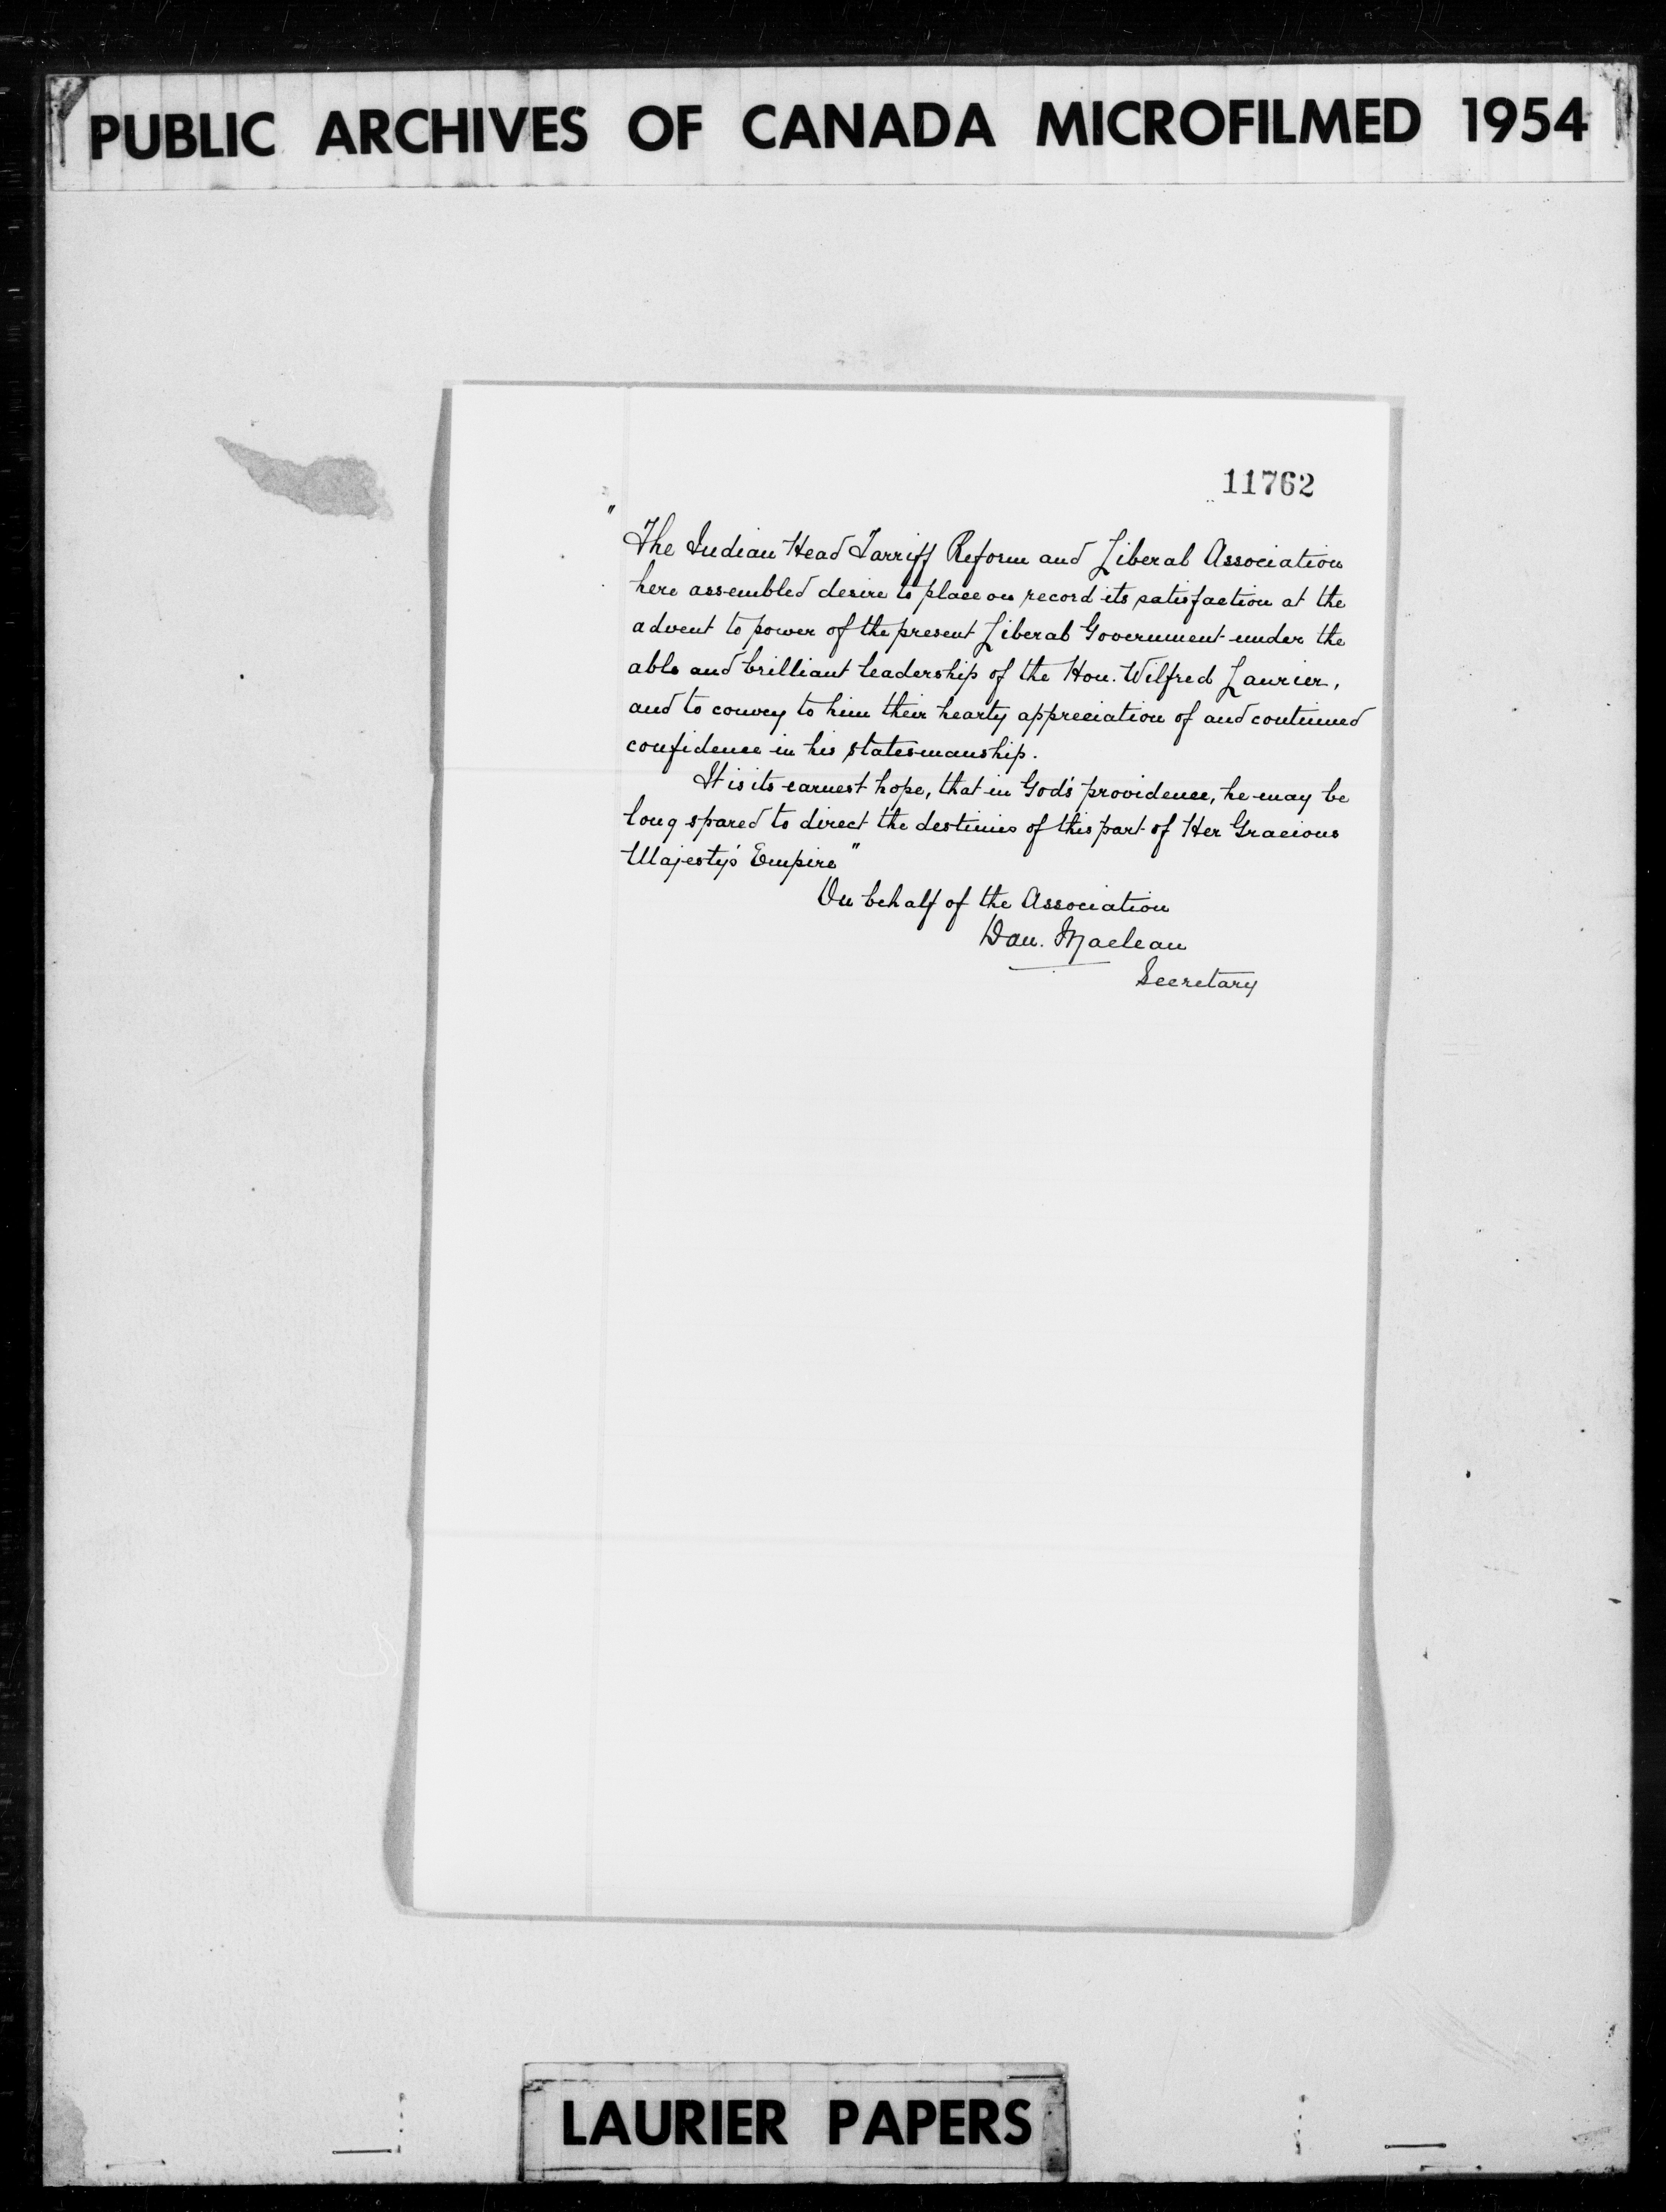 PUBLIC ARCHIVES OF CANADA MICROFILMED 1954
11762
" The Indian Head Tarriff Reform and Liberal Association
here assembled desire to place on record its satisfaction at the
advent to power of the present Liberal Government under the
able and brilliant leadership of the Hon. Wilfred Laurier,
and to convey to him their hearty appreciation of and continued
confidence in his statesmanship.
It is its earnest hope, that in God's providence, he may be
long spared to direct the destinies of this part of Her Gracious
Majesty's Empire"
On behalf of the Association
Dan. Maclean
Secretary
LAURIER PAPERS